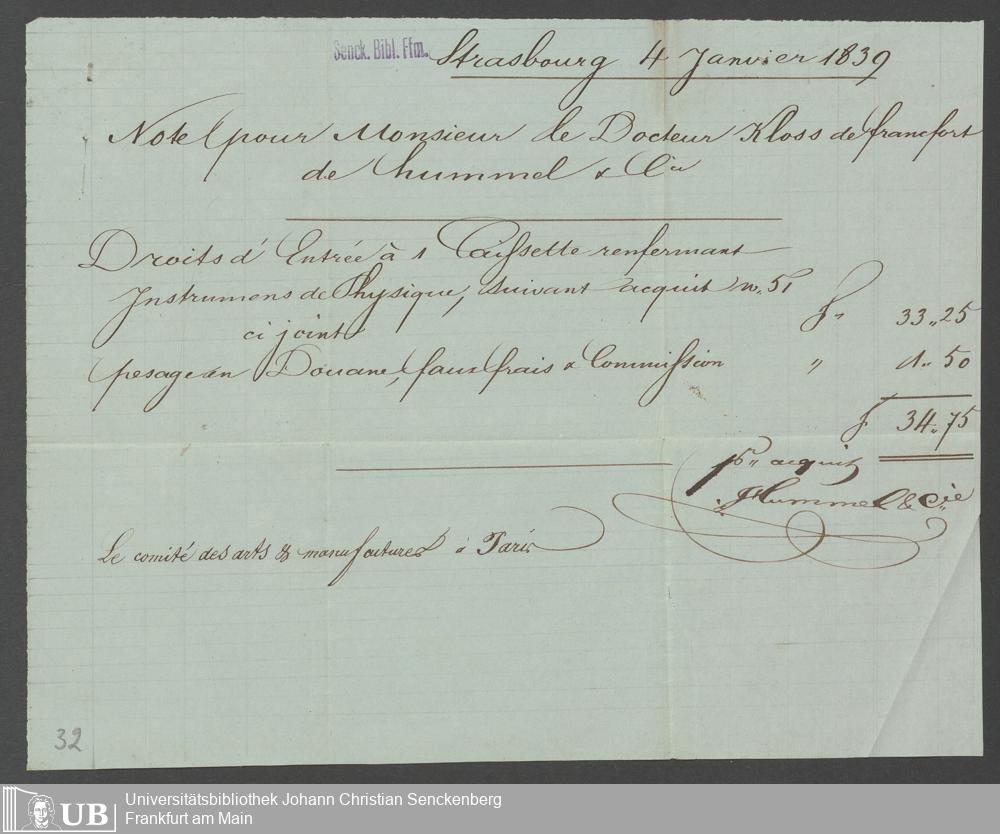 Senck. Bibl. Ffm.
Strasbourg 4 Janvier 1839
Note pour Monsieur le Docteur Kloss de francfort
de hummel & Cie
Droits d'Entrée à 1 Caissette renfermant
Instrumens de Physique, suivant acquit no. 51
ci joint f" 33"25
pesage en Douane, faux frais & Commission " 1"50
f 34"75
pr acquit
JHummel & Cie
Le comité des arts & manufactures à Paris
32
UB
Universitätsbibliothek Johann Christian Senckenberg
Frankfurt am Main